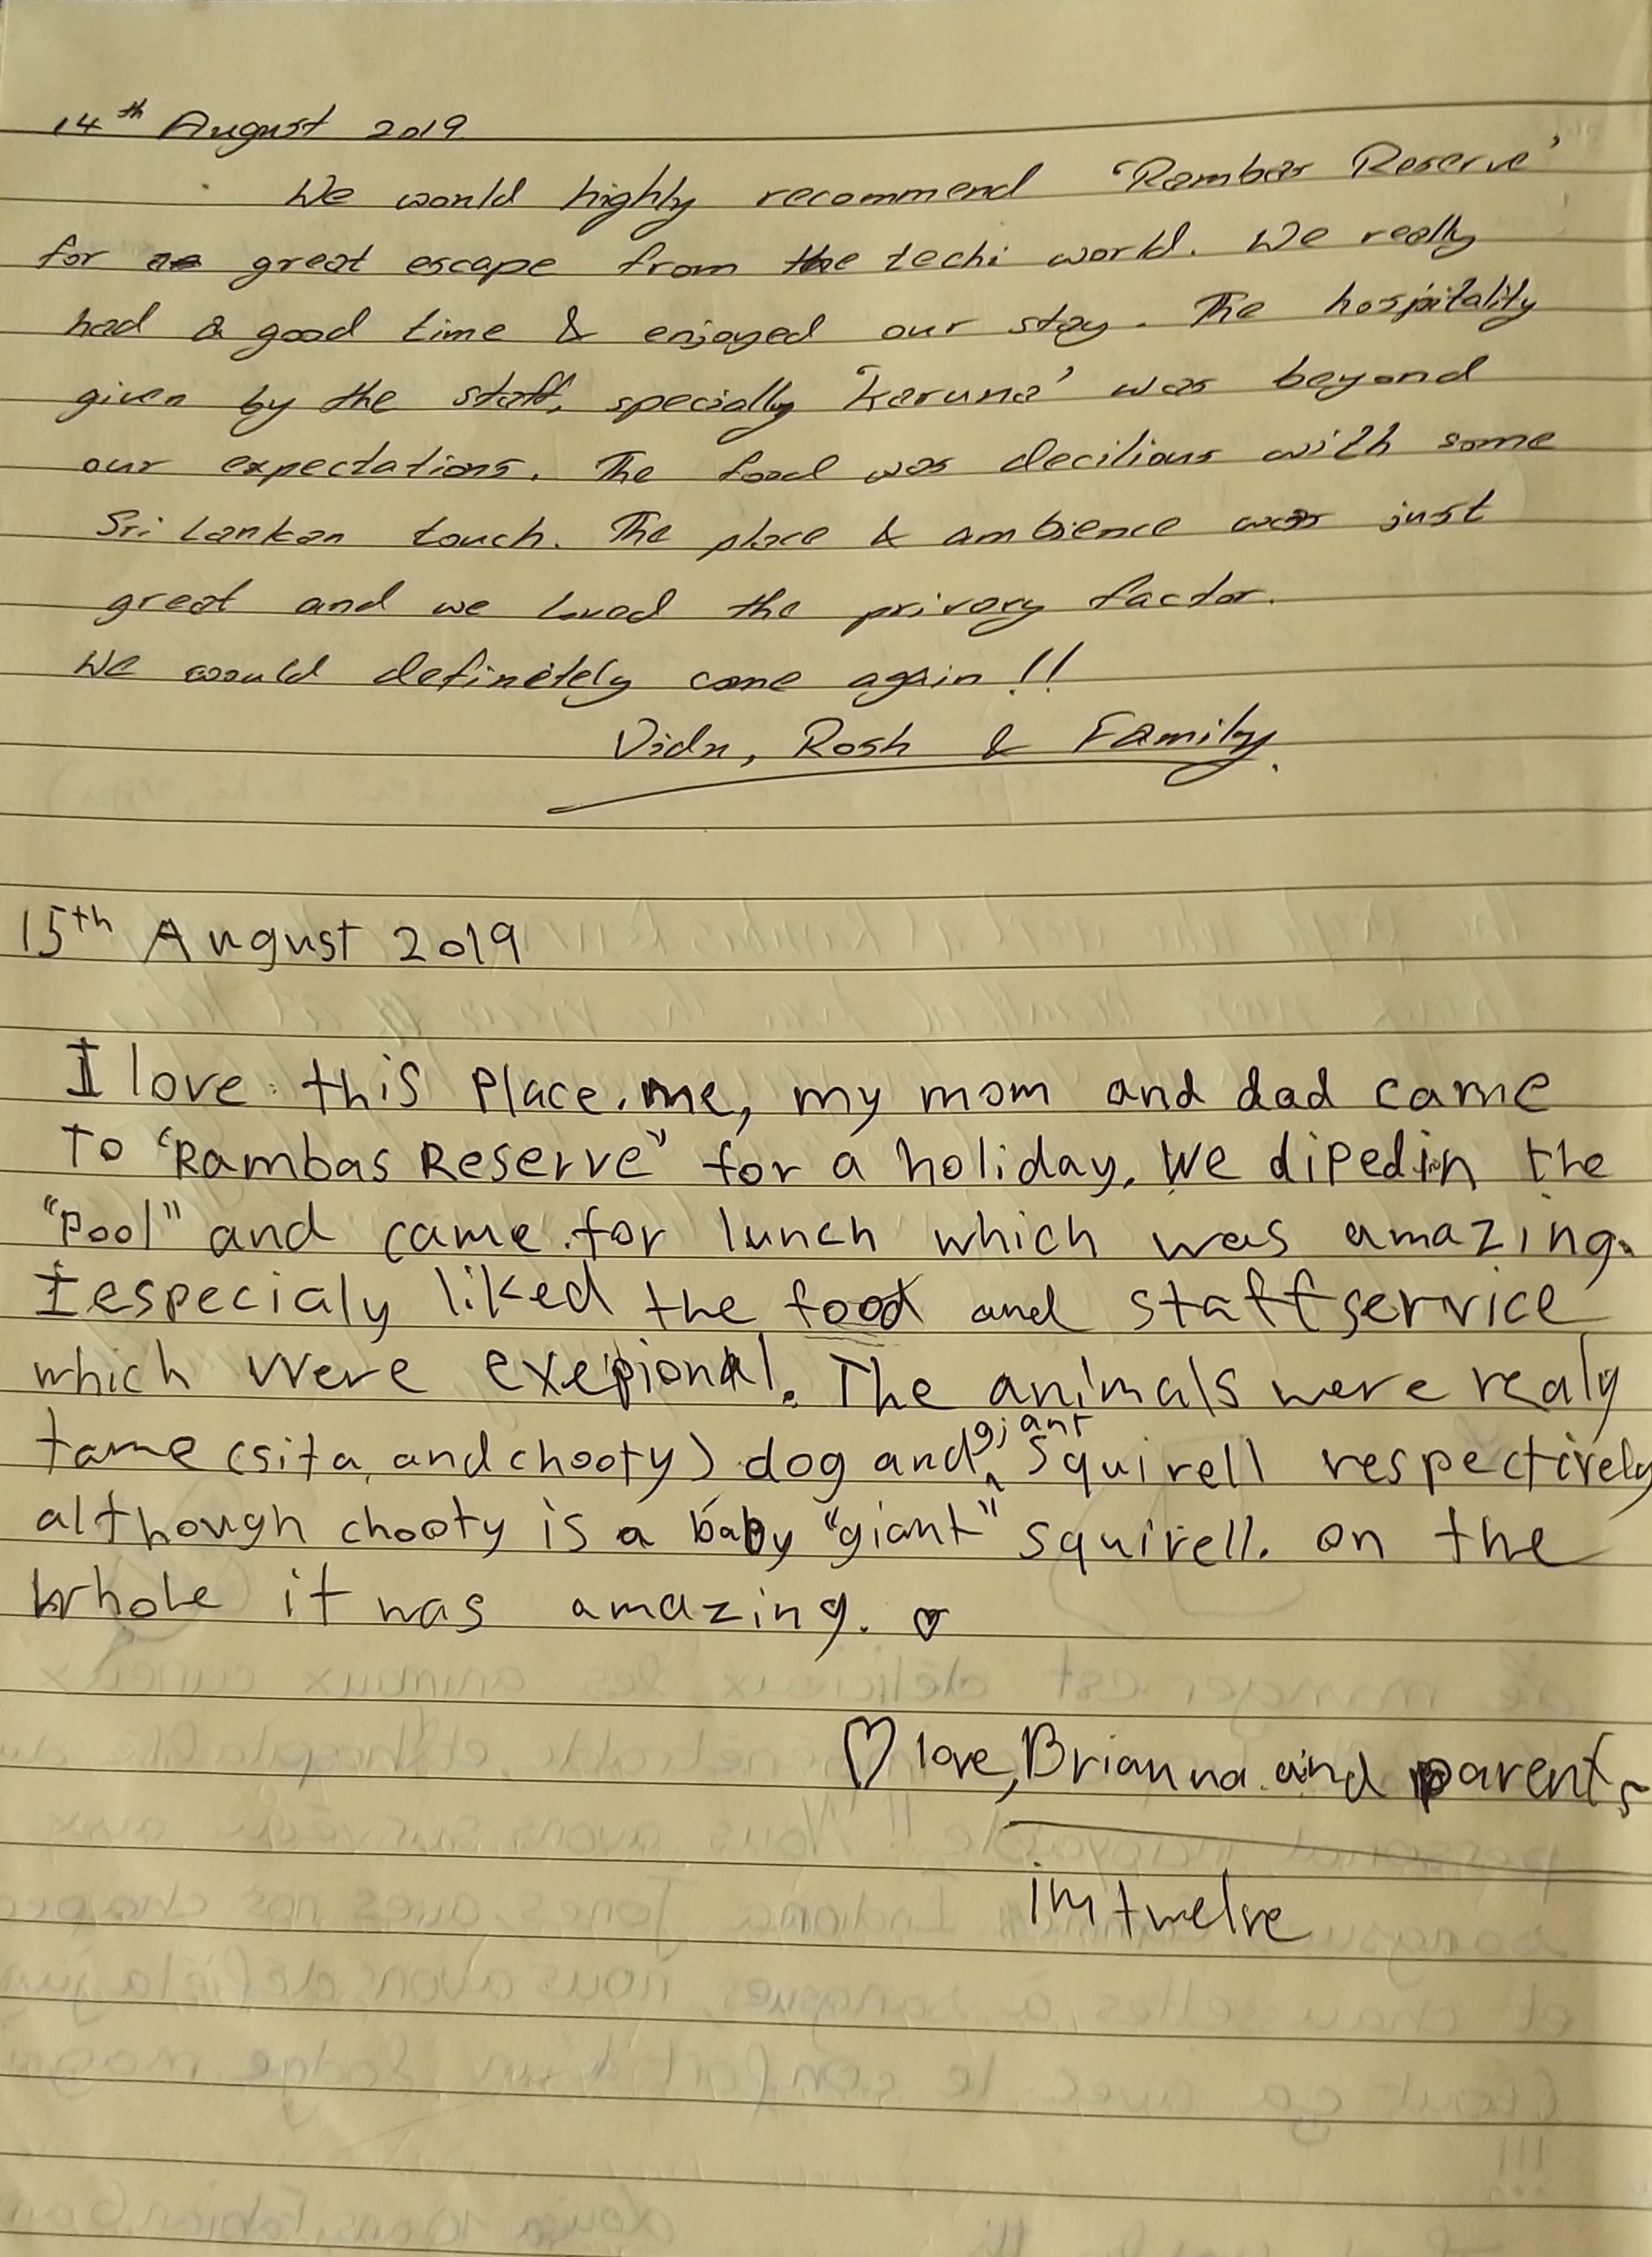 14th August 2019
We would highly recommend 'Rambas Reserve'
for a great escape from the techi world. We really
had a good time & enjoyed our stay. The hospitality
given by the staff, specially 'Karuna' was beyond
our expectations. The food was decilious with some
Sri Lankan touch. The place & ambience was just
great and we loved the privacy factor.
We would definitely come again!!
Vidu, Rosh & Family.
15th August 2019
I love this place. me, my mom and dad came
To "Rambas Reserve" for a holiday. We diped in the
"Pool" and came for lunch which was amazing.
I especialy liked the food and staff service
which were exepional. The animals were realy
tame (sita and chooty) dog and giant squirell respectively
although chooty is a baby "giant" squirell. on the
whole it was amazing. ♡
♡ love, Brianna and parents
im twelve